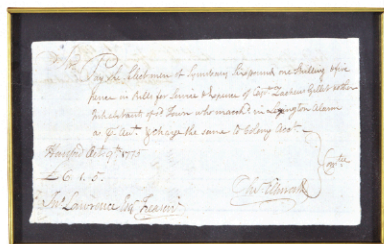 Sr
Pay the Selectmen of Simsbury Six pounds one Shilling & five
pence in Bills for Service & Expence of Capt Zacheus Gillet & other
Inhabitants of sd Town who march'd in Lexington Alarm
as pr Acct. & charge the same to Colony Acct.
Hartford Octr 9th 1775
£6.1.5.
Comtee
Jno Lawrence Esq Treasurr
Thos